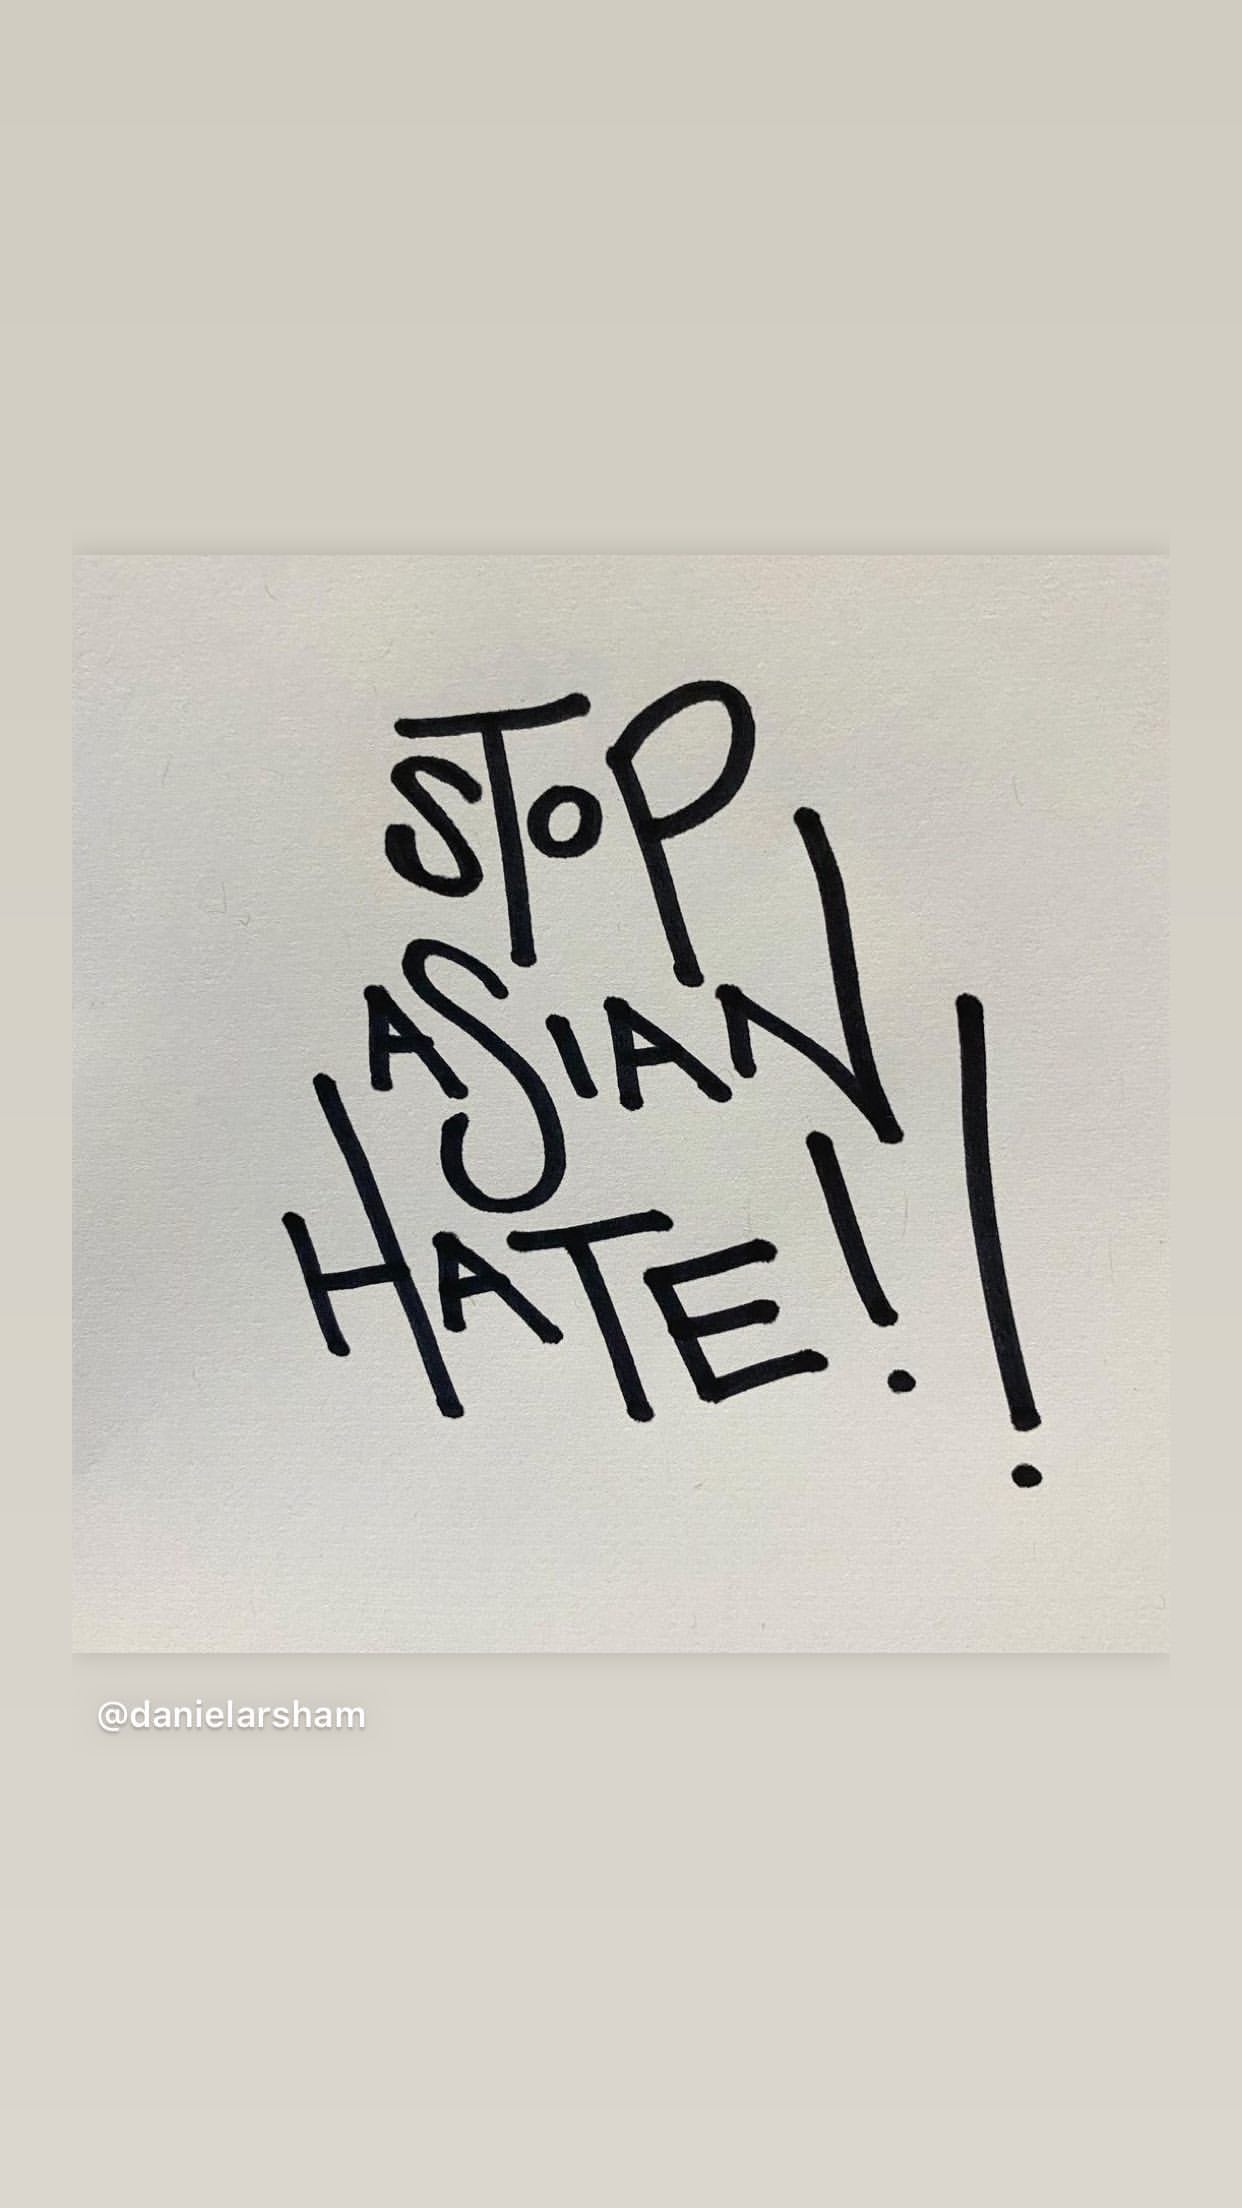 STOP
ASIAN
HATE!!
@danielarsham